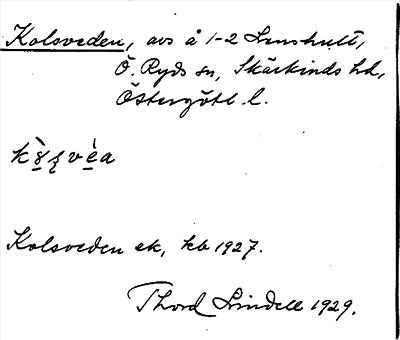 Kolsveden, avs å 1-2 Linshult,
Ö. Ryds sn, Skärkinds hd,
Östergötl. l.
Kolsveden ek, kb 1927.
Thord Lindell 1929.